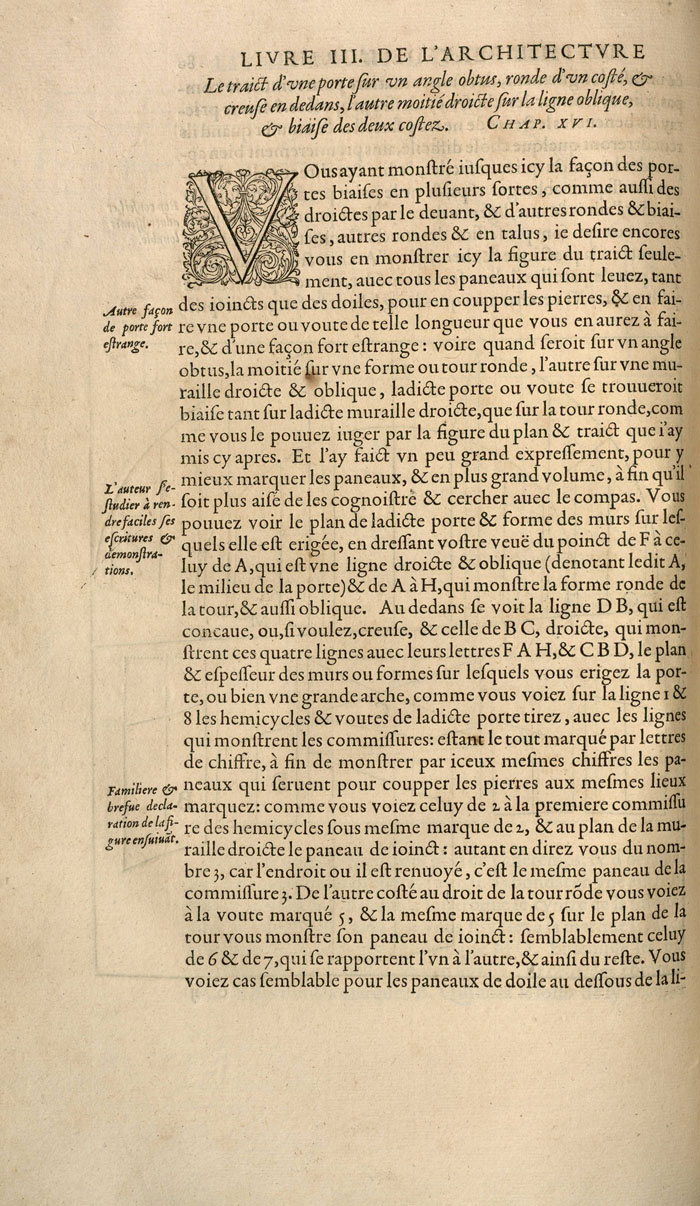 LIVRE III. DE L'ARCHITECTVRE
Le traict d'vne porte ſur vn angle obtus, ronde d'vn coſté, &
creuſe en dedans, l'autre moitié droicte ſur la ligne oblique,
& biaiſe des deux coſtez. CHAP. XVI.
VOus ayant monſtré iuſques icy la façon des por-
tes biaiſes en pluſieurs ſortes, comme auſſi des
droictes par le deuant, & d'autres rondes & biai-
ſes, autres rondes & en talus, ie deſire encores
vous en monſtrer icy la figure du traict ſeule-
ment, auec tous les paneaux qui ſont leuez, tant
des ioincts que des doiles, pour en coupper les pierres, & en fai-
re vne porte ou voute de telle longueur que vous en aurez à fai-
re, & d'une façon fort eſtrange: voire quand ſeroit ſur vn angle
obtus, la moitié ſur vne forme ou tour ronde, l'autre ſur vne mu-
raille droicte & oblique, ladicte porte ou voute ſe trouueroit
biaiſe tant ſur ladicte muraille droicte, que ſur la tour ronde, com
me vous le pouuez iuger par la figure du plan & traict que i'ay
mis cy apres. Et l'ay faict vn peu grand expreſſement, pour y
mieux marquer les paneaux, & en plus grand volume, à fin qu'il
ſoit plus aiſé de les cognoiſtre & cercher auec le compas. Vous
pouuez voir le plan de ladicte porte & forme des murs ſur leſ-
quels elle eſt erigée, en dreſſant voſtre veuë du poinct de F à ce-
luy de A, qui eſt vne ligne droicte & oblique (denotant ledit A,
le milieu de la porte) & de A à H, qui monſtre la forme ronde de
la tour, & auſſi oblique. Au dedans ſe voit la ligne D B, qui eſt
concaue, ou, ſi voulez, creuſe, & celle de B C, droicte, qui mon-
ſtrent ces quatre lignes auec leurs lettres F A H, & C B D, le plan
& eſpeſſeur des murs ou formes ſur leſquels vous erigez la por-
te, ou bien vne grande arche, comme vous voiez ſur la ligne 1 &
8 les hemicycles & voutes de ladicte porte tirez, auec les lignes
qui monſtrent les commiſſures: eſtant le tout marqué par lettres
de chiffre, à fin de monſtrer par iceux meſmes chiffres les pa-
neaux qui ſeruent pour coupper les pierres aux meſmes lieux
marquez: comme vous voiez celuy de 2 à la premiere commiſſu
re des hemicycles ſous meſme marque de 2, & au plan de la mu-
raille droicte le paneau de ioinct: autant en direz vous du nom-
bre 3, car l'endroit ou il eſt renuoyé, c'eſt le meſme paneau de la
commiſſure 3. De l'autre coſté au droit de la tour rõde vous voiez
à la voute marqué 5, & la meſme marque de 5 ſur le plan de la
tour vous monſtre ſon paneau de ioinct: ſemblablement celuy
de 6 & de 7, qui ſe rapportent l'vn à l'autre, & ainſi du reſte. Vous
voiez cas ſemblable pour les paneaux de doile au deſſous de la li-
Autre façon
de porte fort
eſtrange.
L'auteur ſe-
ſtudier à ren-
dre faciles ſes
eſcritures &
demonſtra-
tions.
Familiere &
brefue decla-
ration de la fi-
gure enſuiuãt.